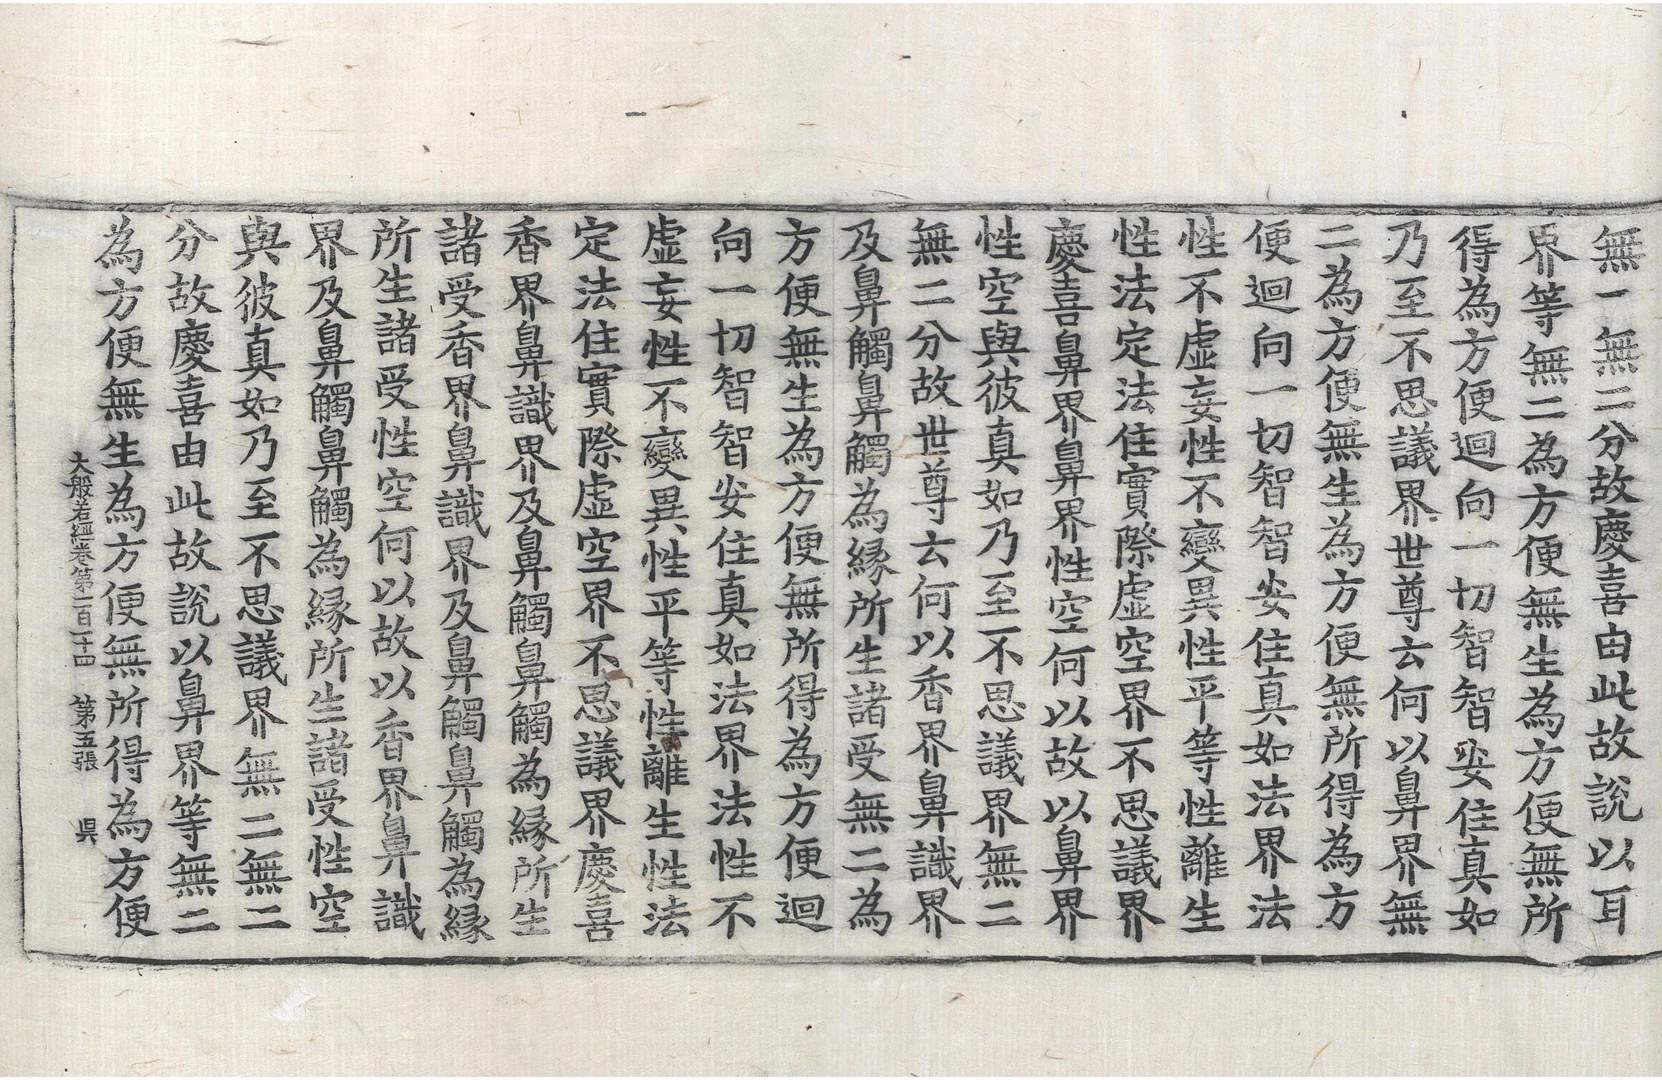 無二無二分故慶喜由此故說以耳
界等無二為方便無生為方便無所
得為方便迴向一切智智安住真如
乃至不思議界世尊云何以鼻界無
二為方便無生為方便無所得為方
便迴向一切智智安住真如法界法
性不虛妄性不變異性平等性離生
性法定法住實際虛空界不思議界
慶喜鼻界鼻界性空何以故以鼻界
性空與彼真如乃至不思議界無二
無二分故世尊云何以香界鼻識界
及鼻觸鼻觸為緣所生諸受無二為
方便無生為方便無所得為方便迴
向一切智智安住真如法界法性不
虛妄性不變異性平等性離生性法
定法住實際虛空界不思議界慶喜
香界鼻識界及鼻觸鼻觸為緣所生
諸受香界鼻識界及鼻觸鼻觸為緣
所生諸受性空何以故以香界鼻識
界及鼻觸鼻觸為緣所生諸受性空
與彼真如乃至不思議界無二無二
分故慶喜由此故說以鼻界等無二
為方便無生為方便無所得為方便
大般若經卷第一百一十四 第五張 昃